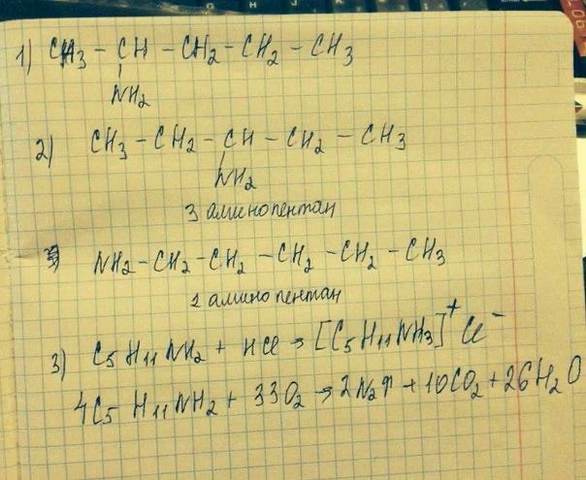 1) CH3 - CH - CH2 - CH2 - CH3
NH2
2) CH3 - CH2 - CH - CH2 - CH3
NH2
3 аминопентан
NH2 - CH2 - CH2 - CH2 - CH2 - CH3
1 аминопентан
3) C5H11NH2 + HCl → [C5H11NH3]⁺Cl⁻
4C5H11NH2 + 33O2 → 2N2↑ + 10CO2 + 26H2O